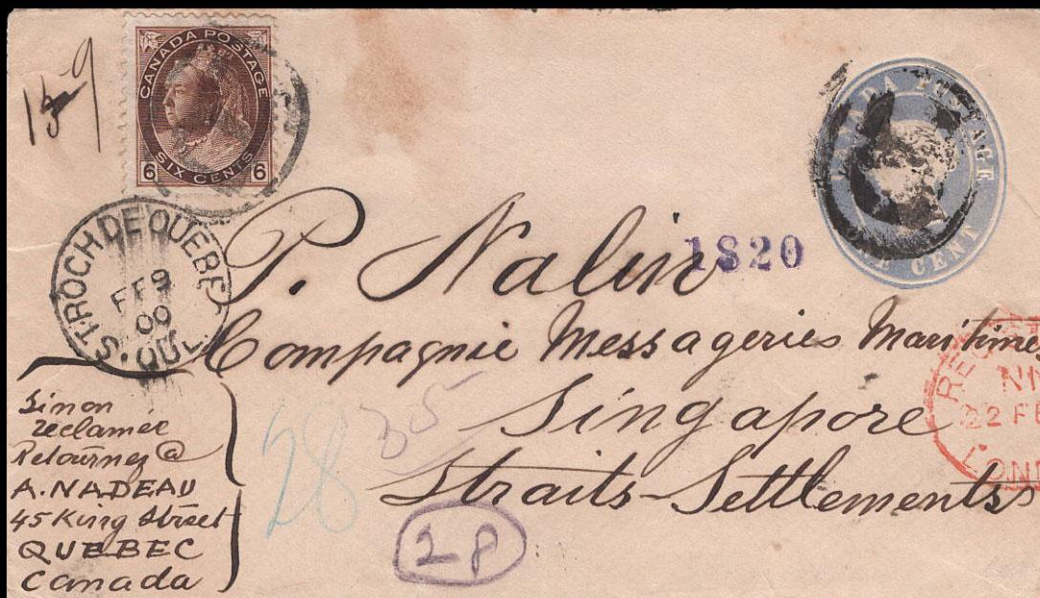 CANADA POSTAGE
6 SIX CENTS 6
CANADA POSTAGE
ONE CENT
ST ROCH DE QUEBEC
FE 9
00
QUE
P. Nalin
1820
Compagnie Messageries Maritimes
Singapore
Straits-Settlements
REG
22 FE
LOND
Sinon
reclamée
Retournez @
A. NADEAU
45 King Street
QUEBEC
Canada
28
35
28